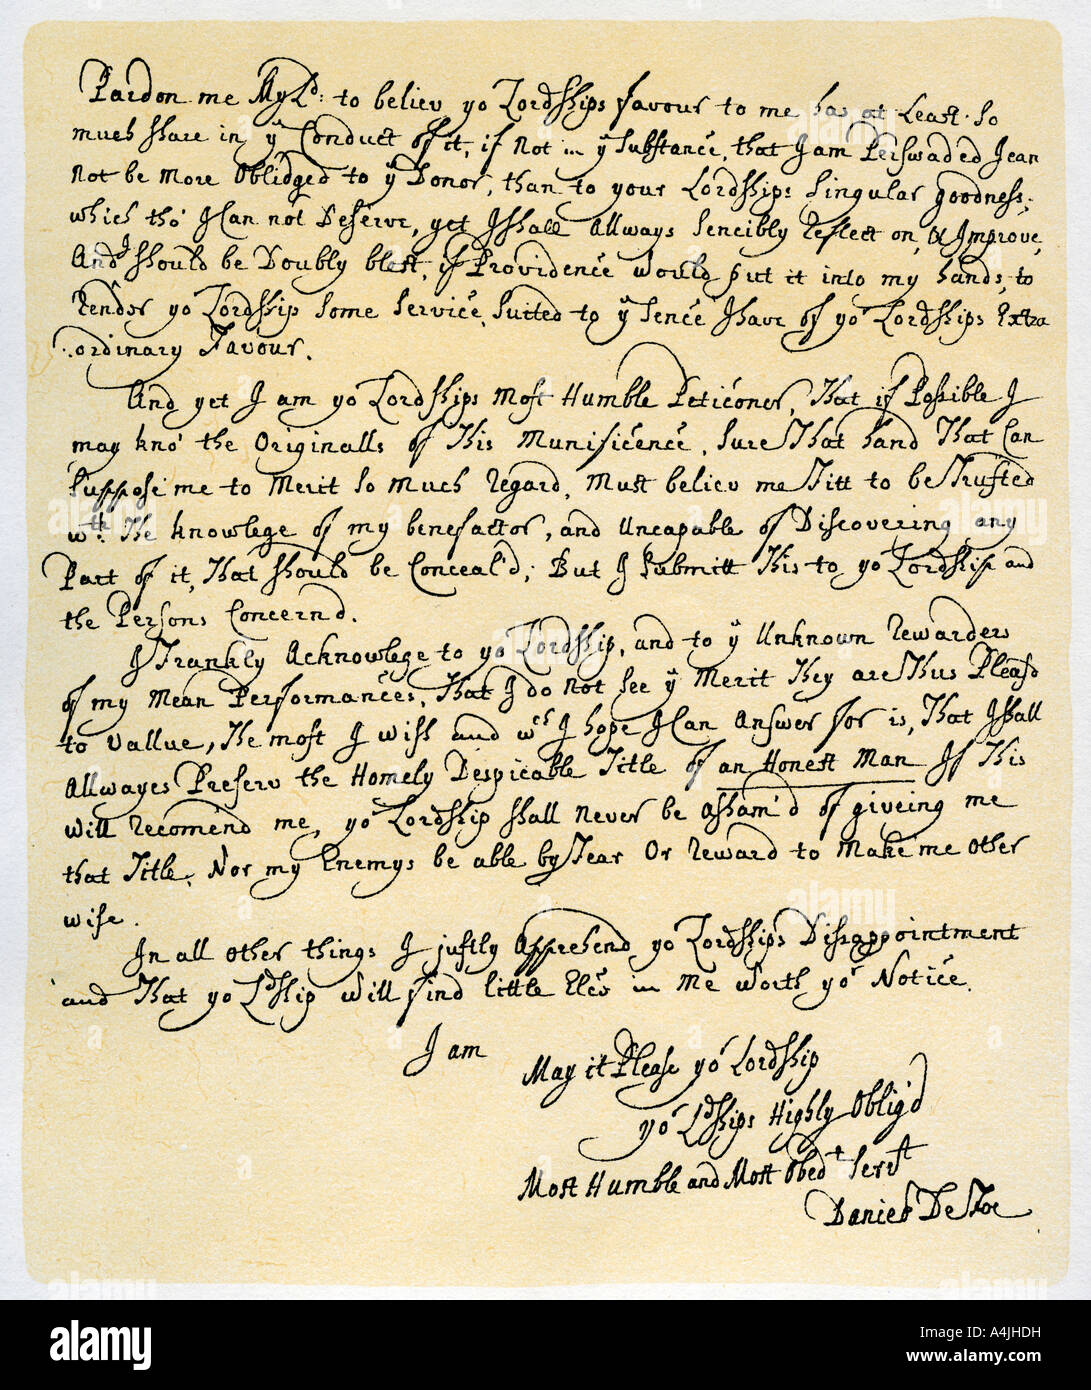 Pardon me My Ld: to believ yor Lordships favour to me has at Least so
much share in ye Conduct of it, if Not in ye Substance, that I am Perswaded I can
Not be More Oblidged to ye Donor, than to your Lordships Singular goodness;
which tho' I Can not Deserve, yet I shall Allways Sencibly Reflect on, & Improve,
And I should be Doubly blest, if Providence would put it into my hands, to
Render yor Lordship Some Service, Suited to ye Sence I have of yor Lordships Extra
ordinary Favour.
And yet I am yor Lordships Most Humble Peticoner, That if Possible I
may kno' the Originalls of This Munificence, Sure That hand That Can
Suppose me to Merit So Much Regard, Must believ me Fitt to be Trusted
wth: The knowlege of my benefactor, and Uncapable of Discovering any
Part of it, That should be Conceal'd; But I Submitt This to yor Lordship and
the Persons Concernd.
I Frankly Acknowlege to yor Lordship, and to ye Unknown Rewarders
of my Mean Performances, That I do Not See ye Merit They are Thus Pleasd
to vallue, The most I wish and wch I hope I Can Answer for is, That I shall
Allwayes Preserv the Homely Despicable Title of an Honest Man If This
will recomend me, yor Lordship shall never be Asham'd of giveing me
that Title, Nor my Enemys be able by Fear Or Reward to Make me other
wise.
In all other things I justly Apprehend yor Lordships Disappointment
and That yor Ldship will find little Elce in Me Worth yor Notice.
I am
May it Please yor Lordship
yor Ldships Highly Oblig'd
Most Humble and Most Obedt Servt
Daniel De Foe
alamy
Image ID: A4JHDH
www.alamy.com